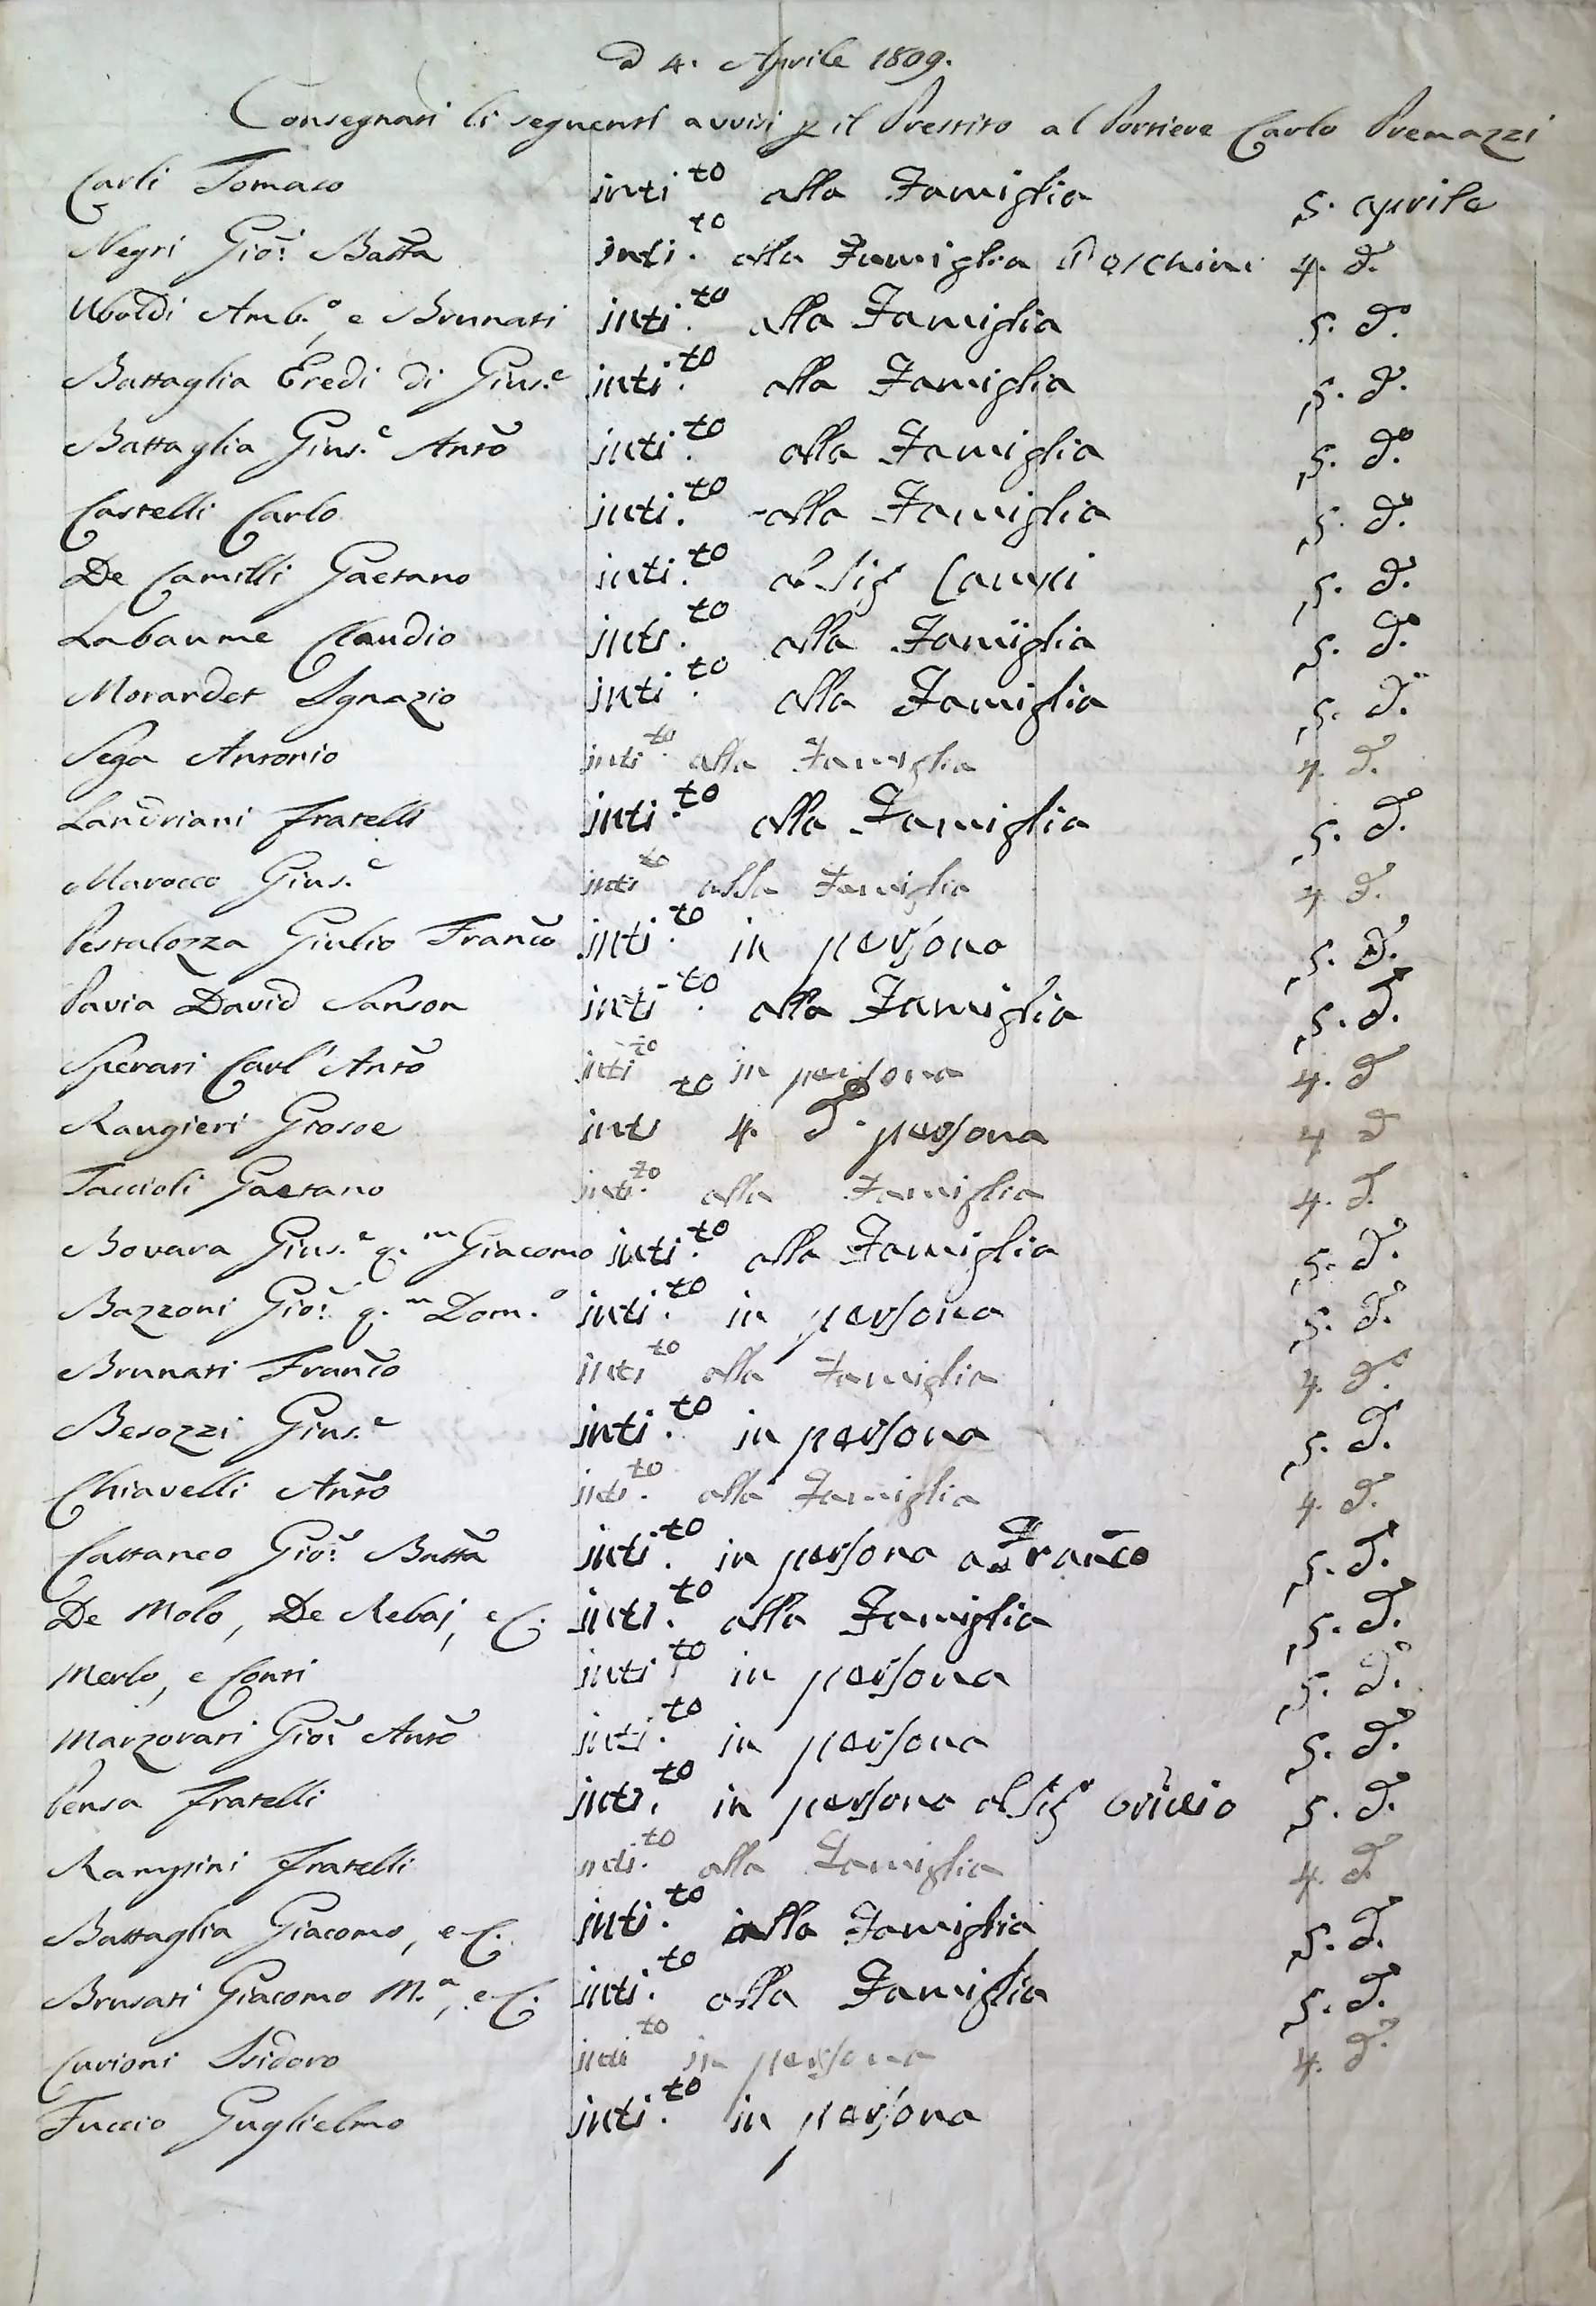 d 4. Aprile 1809.
Consegnati li seguenti avvisi p il Prestito al Portiere Carlo Premazzi
Carli Tomaso inti.to alla Famiglia 5. aprile
Negri Gio: Batta inti.to alla Famiglia 4. d.
Uboldi Amb.o, e Brunati inti.to alla Famiglia 5. d.o
Battaglia Eredi di Gius.e inti.to alla Famiglia 5. d.o
Battaglia Gius.e Anto inti.to alla Famiglia 5. d.o
Castelli Carlo inti.to alla Famiglia 5. d.o
De Camilli Gaetano inti.to al Sig 5. d.o
Labaume Claudio inti.to alla Famiglia 5. d.o
Morandet Ignazio inti.to alla Famiglia 5. d.o
Sega Antonio inti.to alla Famiglia 4. d.
Landriani fratelli inti.to alla Famiglia 5. d.o
Marocco Gius.e inti.to alla Famiglia 4 d.
Pestalozza Giulio Franco inti.to in persona 5. d.
Pavia David Sanson inti.to alla Famiglia 5. d.
Sperati Carl' Anto inti.to in persona 4. d
Raugieri Giosoe inti to 4. d.o persona 4 d
Taccioli Gaetano inti.to alla Famiglia 4. d.
Bovara Gius.e q.m Giacomo inti.to alla Famiglia 5. d.o
Bazzoni Gio: q.m Dom.o inti.to in persona 5. d.o
Brunati Franco inti to alla Famiglia 4. d.o
Besozzi Gius.e inti.to in persona 5. d.o
Chiavelli Anto inti.to alla Famiglia 4. d.o
Cattaneo Gio: Batta inti.to in persona a Franco 5. d.o
De Molo, De Rebaj, e C. inti.to alla Famiglia 5. d.o
Merlo, e Conti inti to in persona 5. d.o
Marzorati Gio: Anto inti.to in persona 5. d.o
Pensa fratelli inti.to in persona al Sigr 5. d.o
Rampini fratelli inti.to alla Famiglia 4. d.
Battaglia Giacomo, e C. inti.to alla Famiglia 5. d.o
Brusati Giacomo M.a, e C. inti.to alla Famiglia 5. d.o
Curioni Isidoro inti to in persona 4. d.o
Fuccio Guglielmo inti.to in persona